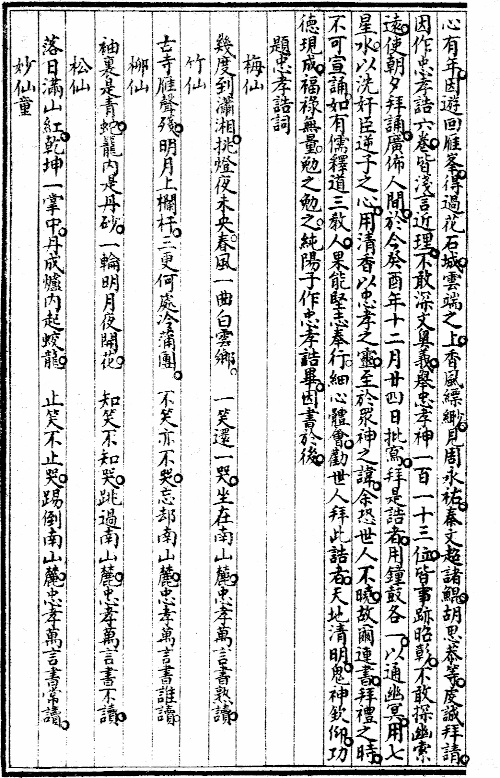 心有年因遊回雁峯得過花石城雲端之上香風縹緲見周永祐秦文超諸鯤胡思恭等虔誠拜請
因作忠孝誥六卷皆淺言近理不敢深文奥義舉忠孝神一百一十三位皆事跡昭彰不敢探幽索
遠使朝夕拜誦廣佈人間於今癸酉年十二月廿四日批寫拜是誥者用鐘鼓各一以通幽冥用七
星水以洗奸臣逆子之心用清香以忠孝之靈至於眾神之諱余恐世人不曉故爾連書拜禮之時
不可宣誦如有儒釋道三教人果能堅志奉行細心體會勸世人拜此誥者天地清明鬼神欽仰功
德現成福祿無量勉之勉之純陽子作忠孝誥畢因書於後
題忠孝誥詞
梅仙
幾度到瀟湘挑燈夜未央春風一曲白雲鄉 一笑還一哭坐在南山麓忠孝萬言書孰讀
竹仙
古寺雁聲殘明月上欄杆三更何處冷蒲團 不笑亦不哭忘却南山麓忠孝萬言書誰讀
柳仙
袖裏是青蛇龍内是丹砂一輪明月夜開花 知笑不知哭跳過南山麓忠孝萬言書不讀
松仙
落日滿山紅乾坤一掌中丹成爐内起蛟龍 止笑不止哭踢倒南山麓忠孝萬言書常讀
妙仙童